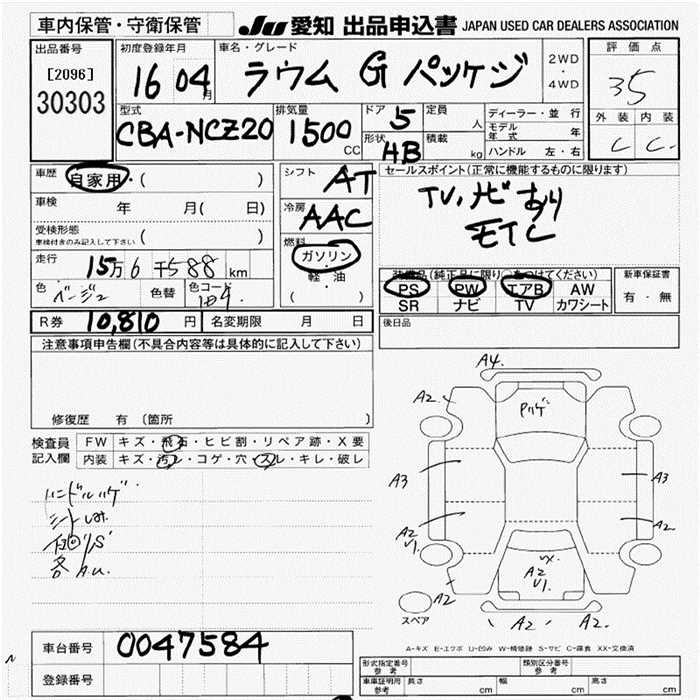 車内保管・守衛保管
JU 愛知 出品申込書 JAPAN USED CAR DEALERS ASSOCIATION
出品番号
[2096]
30303
初度登録年月
16 04月
車名・グレード
ラウム G パッケジ
2WD
・
4WD
評価点
35
外装 内装
C C
型式
CBA-NCZ20
排気量
1500 CC
ドア 5
形状 HB
定員 人
積載 kg
ディーラー・並行
モデル年式 年
ハンドル 左・右
車歴 自家用・( )
車検 年 月( 日)
受検形態
車検付きのみ記入して下さい ( )
走行 15万6千588 km
色 ベージュ 色替 色コード
シフト AT
冷房 AAC
燃料
ガソリン
・
軽・油
( )
セールスポイント(正常に機能するものに限ります)
TV,ナビあり
ETC
装備品(純正品に限り○をつけてください)
PS PW エアB AW
SR ナビ TV カワシート
新車保証書
有・無
R券 10,810 円 名変期限 月 日
後日品
注意事項申告欄(不具合内容等は具体的に記入して下さい)
修復歴 有 〔箇所
検査員 FW キズ・飛石・ヒビ割・リペア跡・X要
記入欄 内装 キズ・汚レ・コゲ・穴・スレ・キレ・破レ
ハンドルハゲ
A4
A2
A3
A3
A2
V1
A2
A2
V1
A2
A2
A2
スペア
A-キズ E-エクボ U-凹み W-補修跡 S-サビ C-腐食 XX-交換済
車台番号 0047584
登録番号
形式指定番号
参考
類別区分番号
参考
車庫証明用
参考
長さ cm 幅 cm 高さ cm